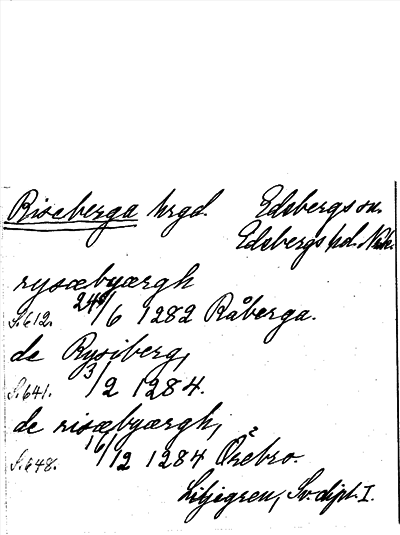 Riseberga hrgd. Edsbergs sn.
Edsbergs hd. Närke.
rysæbyærgh
S. 612. 24/6 1282 Råberga.
de Rysiberg,
S. 641. 3/2 1284.
de risæbyærgh,
S. 648. 16/12 1284 Örebro.
Liljegren, Sv. dipl. I.